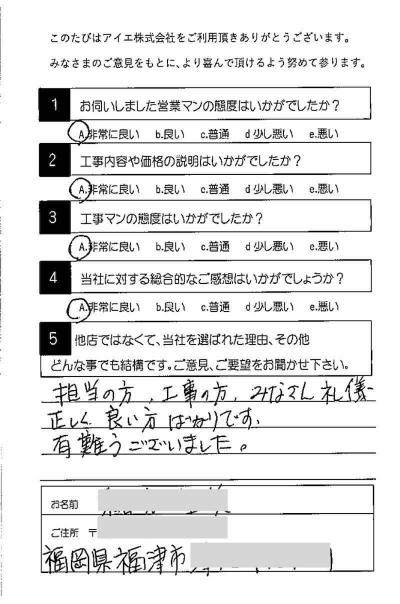 このたびはアイエ株式会社をご利用頂きありがとうございます。
みなさまのご意見をもとに、より喜んで頂けるよう努めて参ります。
1 お伺いしました営業マンの態度はいかがでしたか?
A.非常に良い b.良い c.普通 d 少し悪い e.悪い
2 工事内容や価格の説明はいかがでしたか?
A.非常に良い b.良い c.普通 d 少し悪い e.悪い
3 工事マンの態度はいかがでしたか?
A.非常に良い b.良い c.普通 d 少し悪い e.悪い
4 当社に対する総合的なご感想はいかがでしょうか?
A.非常に良い b.良い c.普通 d 少し悪い e.悪い
5 他店ではなくて、当社を選ばれた理由、その他
どんな事でも結構です。ご意見、ご要望をお聞かせ下さい。
担当の方、工事の方、みなさん礼儀
正しく良い方ばかりです。
有難うございました。
お名前
ご住所 〒
福岡県福津市